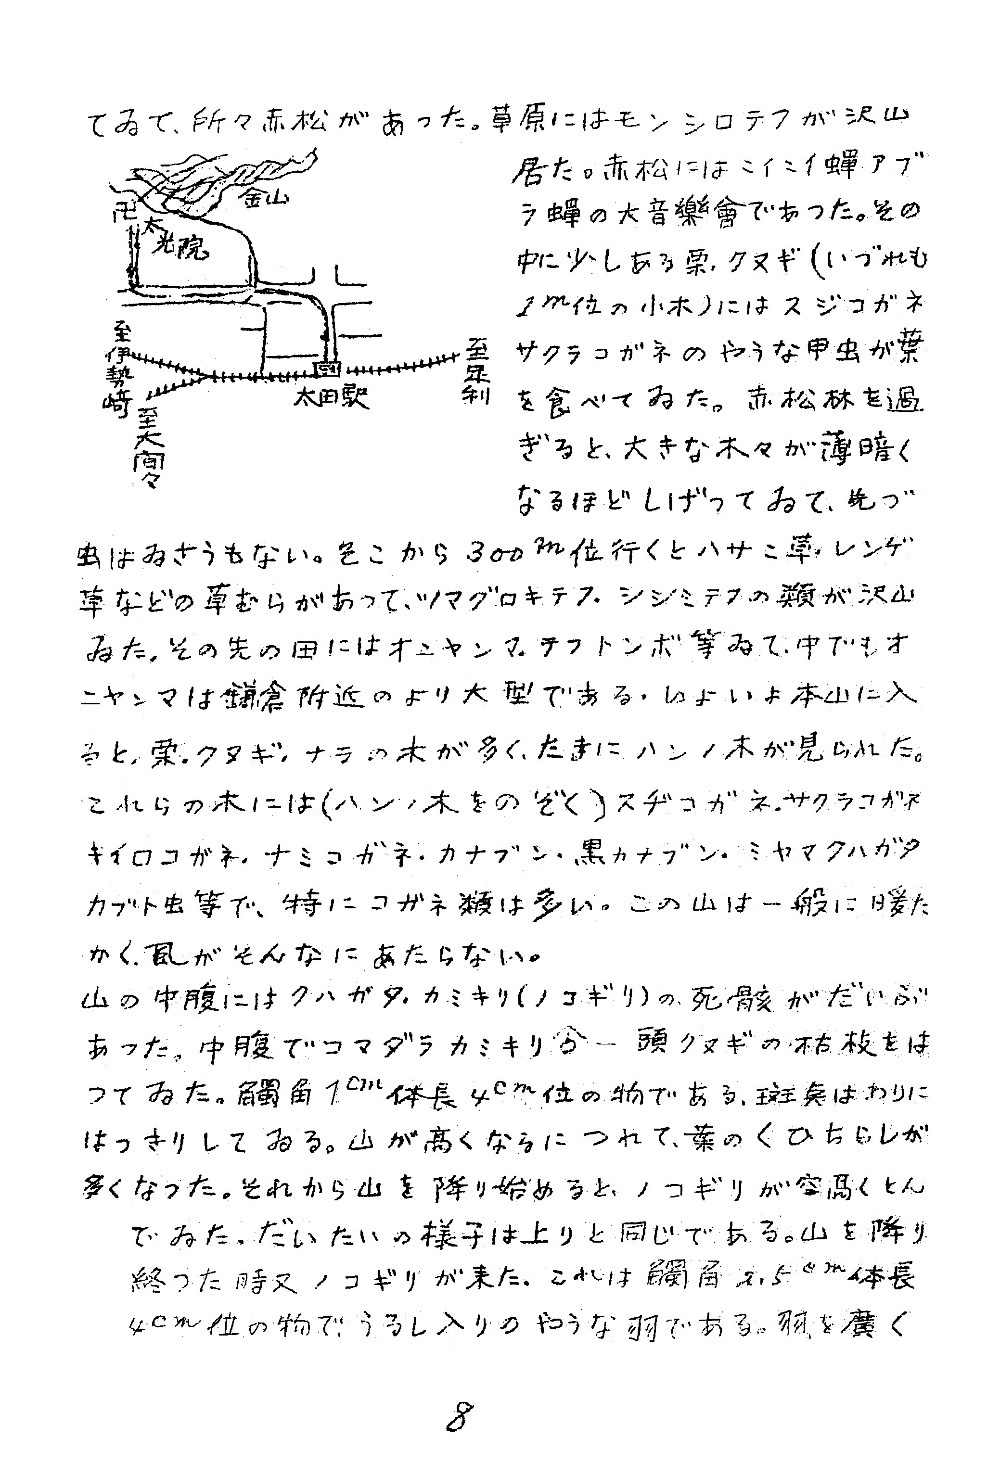 てゐて、所々赤松があつた。草原にはモンシロテフが沢山
居た。赤松にはミイミイ蟬アブ
ラ蟬の大音樂會であつた。その
中に少しある栗、クヌギ(いづれも
1m位の小木)にはスジコガネ
サクラコガネのやうな甲虫が葉
を食べてゐた。赤松林を過
ぎると、大きな木々が薄暗く
なるほどしげつてゐて、先づ
金山
卍
太光院
至伊勢崎
至大間々
太田駅
至足利
虫はゐさうもない。そこから300m位行くとハサミ草、レンゲ
草などの草むらがあって、ツマグロキテフ、シジミテフの類が沢山
ゐた。その先の田にはオニヤンマ、テフトンボ等ゐて、中でもオ
ニヤンマは鎌倉附近のより大型である。いよいよ本山に入
ると、栗、クヌギ、ナラの木が多く、たまにハンノ木が見られた。
これらの木には(ハンノ木をのぞく)スヂコガネ、サクラコガネ
キイロコガネ、ナミコガネ、カナブン、黒カナブン、ミヤマクハガタ
カブト虫等で、特にコガネ類は多い。この山は一般に暖た
かく、風がそんなにあたらない。
山の中腹にはクハガタ、カミキリ(ノコギリ)の死骸がだいぶ
あった。中腹でコマダラカミキリ♂一頭クヌギの枯枝をは
つてゐた。觸角7cm体長4cm位の物である、斑点はわりに
はっきりしてゐる。山が高くなるにつれて、葉のくひちらしが
多くなつた。それから山を降り始めると、ノコギリが空高くとん
でゐた。だいたいの様子は上りと同じである。山を降り
終つた時又ノコギリが来た。これは觸角2.5cm体長
4cm位の物で、うるし入りのやうな羽である。羽を廣く
8